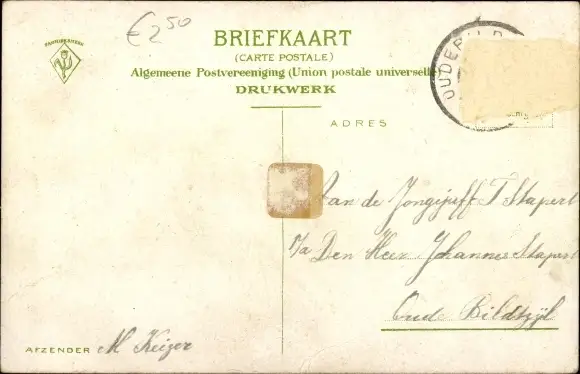 € 2⁵⁰
BRIEFKAART
(CARTE POSTALE)
Algemeene Postvereeniging (Union postale universelle)
DRUKWERK
ADRES
Aan de Jongejuff T Stapert
p/a Den Heer Johannes Stapert
Oude Bildtzijl
AFZENDER M Keizer